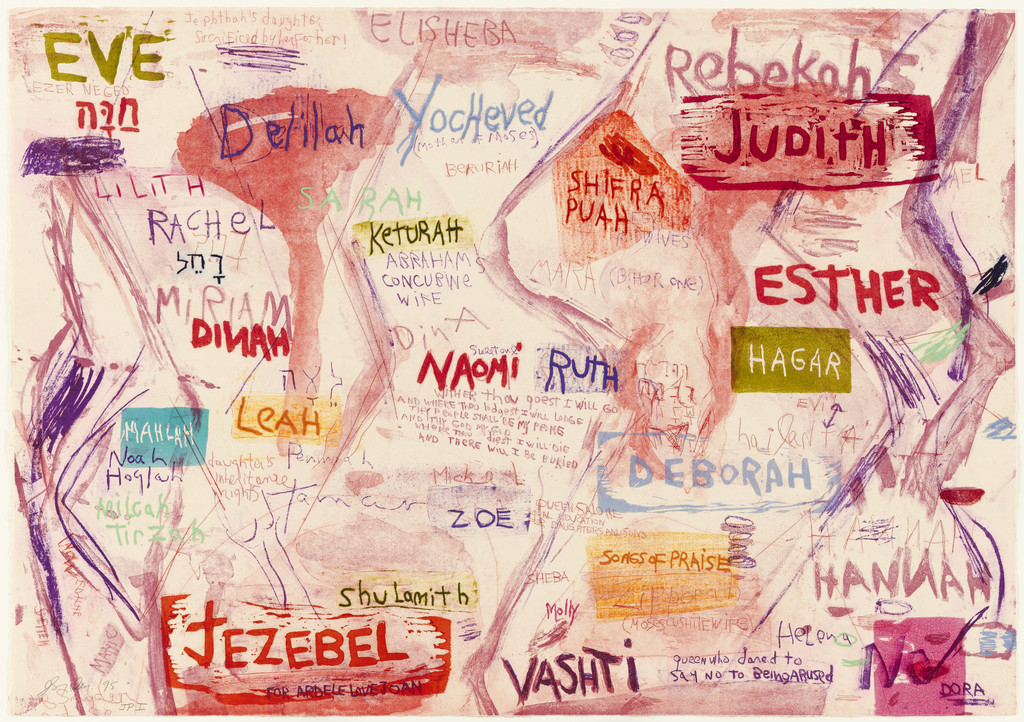 EVE
EZER NEGED
חַוָּה
Jephthah's daughter
sacrificed by her father!
ELISHEBA
Rebekah
Delilah
Yocheved
(Mother of Moses)
BERURIAH
JUDITH
LILITH
SARAH
SHIFRA
PUAH
MIDWIVES
RACHEL
רָחֵל
KETURAH
ABRAHAMS
CONCUBINE
WIFE
MARA (BITTER ONE)
ESTHER
MIRIAM
DINAH
DINA
NAOMI
RUTH
HAGAR
WITHER thou goest I WILL GO
AND WHERE THOU lodgest I WILL LODGE
THY PEOPLE SHALL BE MY PEOPLE
AND THY GOD MY GOD
WHERE THOU diest I WILL DIE
AND THERE WILL I BE BURIED
לֵאָה
LEAH
MAHLAH
Noah
Hoglah
Milcah
Tirzah
daughters
inheritance
rights
Peninnah
EVIL
DEBORAH
Michal
Tamar
ZOE
QUEEN SALOME
EDUCATION
FOR DAUGHTERS AND SONS
SONGS OF PRAISE
HANNAH
HANNAH
SHEBA
Shulamith
Zipporah
(MOSES CUSHITE WIFE)
Molly
Helena
JEZEBEL
FOR ARDELE LOVE JOAN
VASHTI
queen who dared to
SAY NO TO BEING ABUSED
NO
DORA
'95